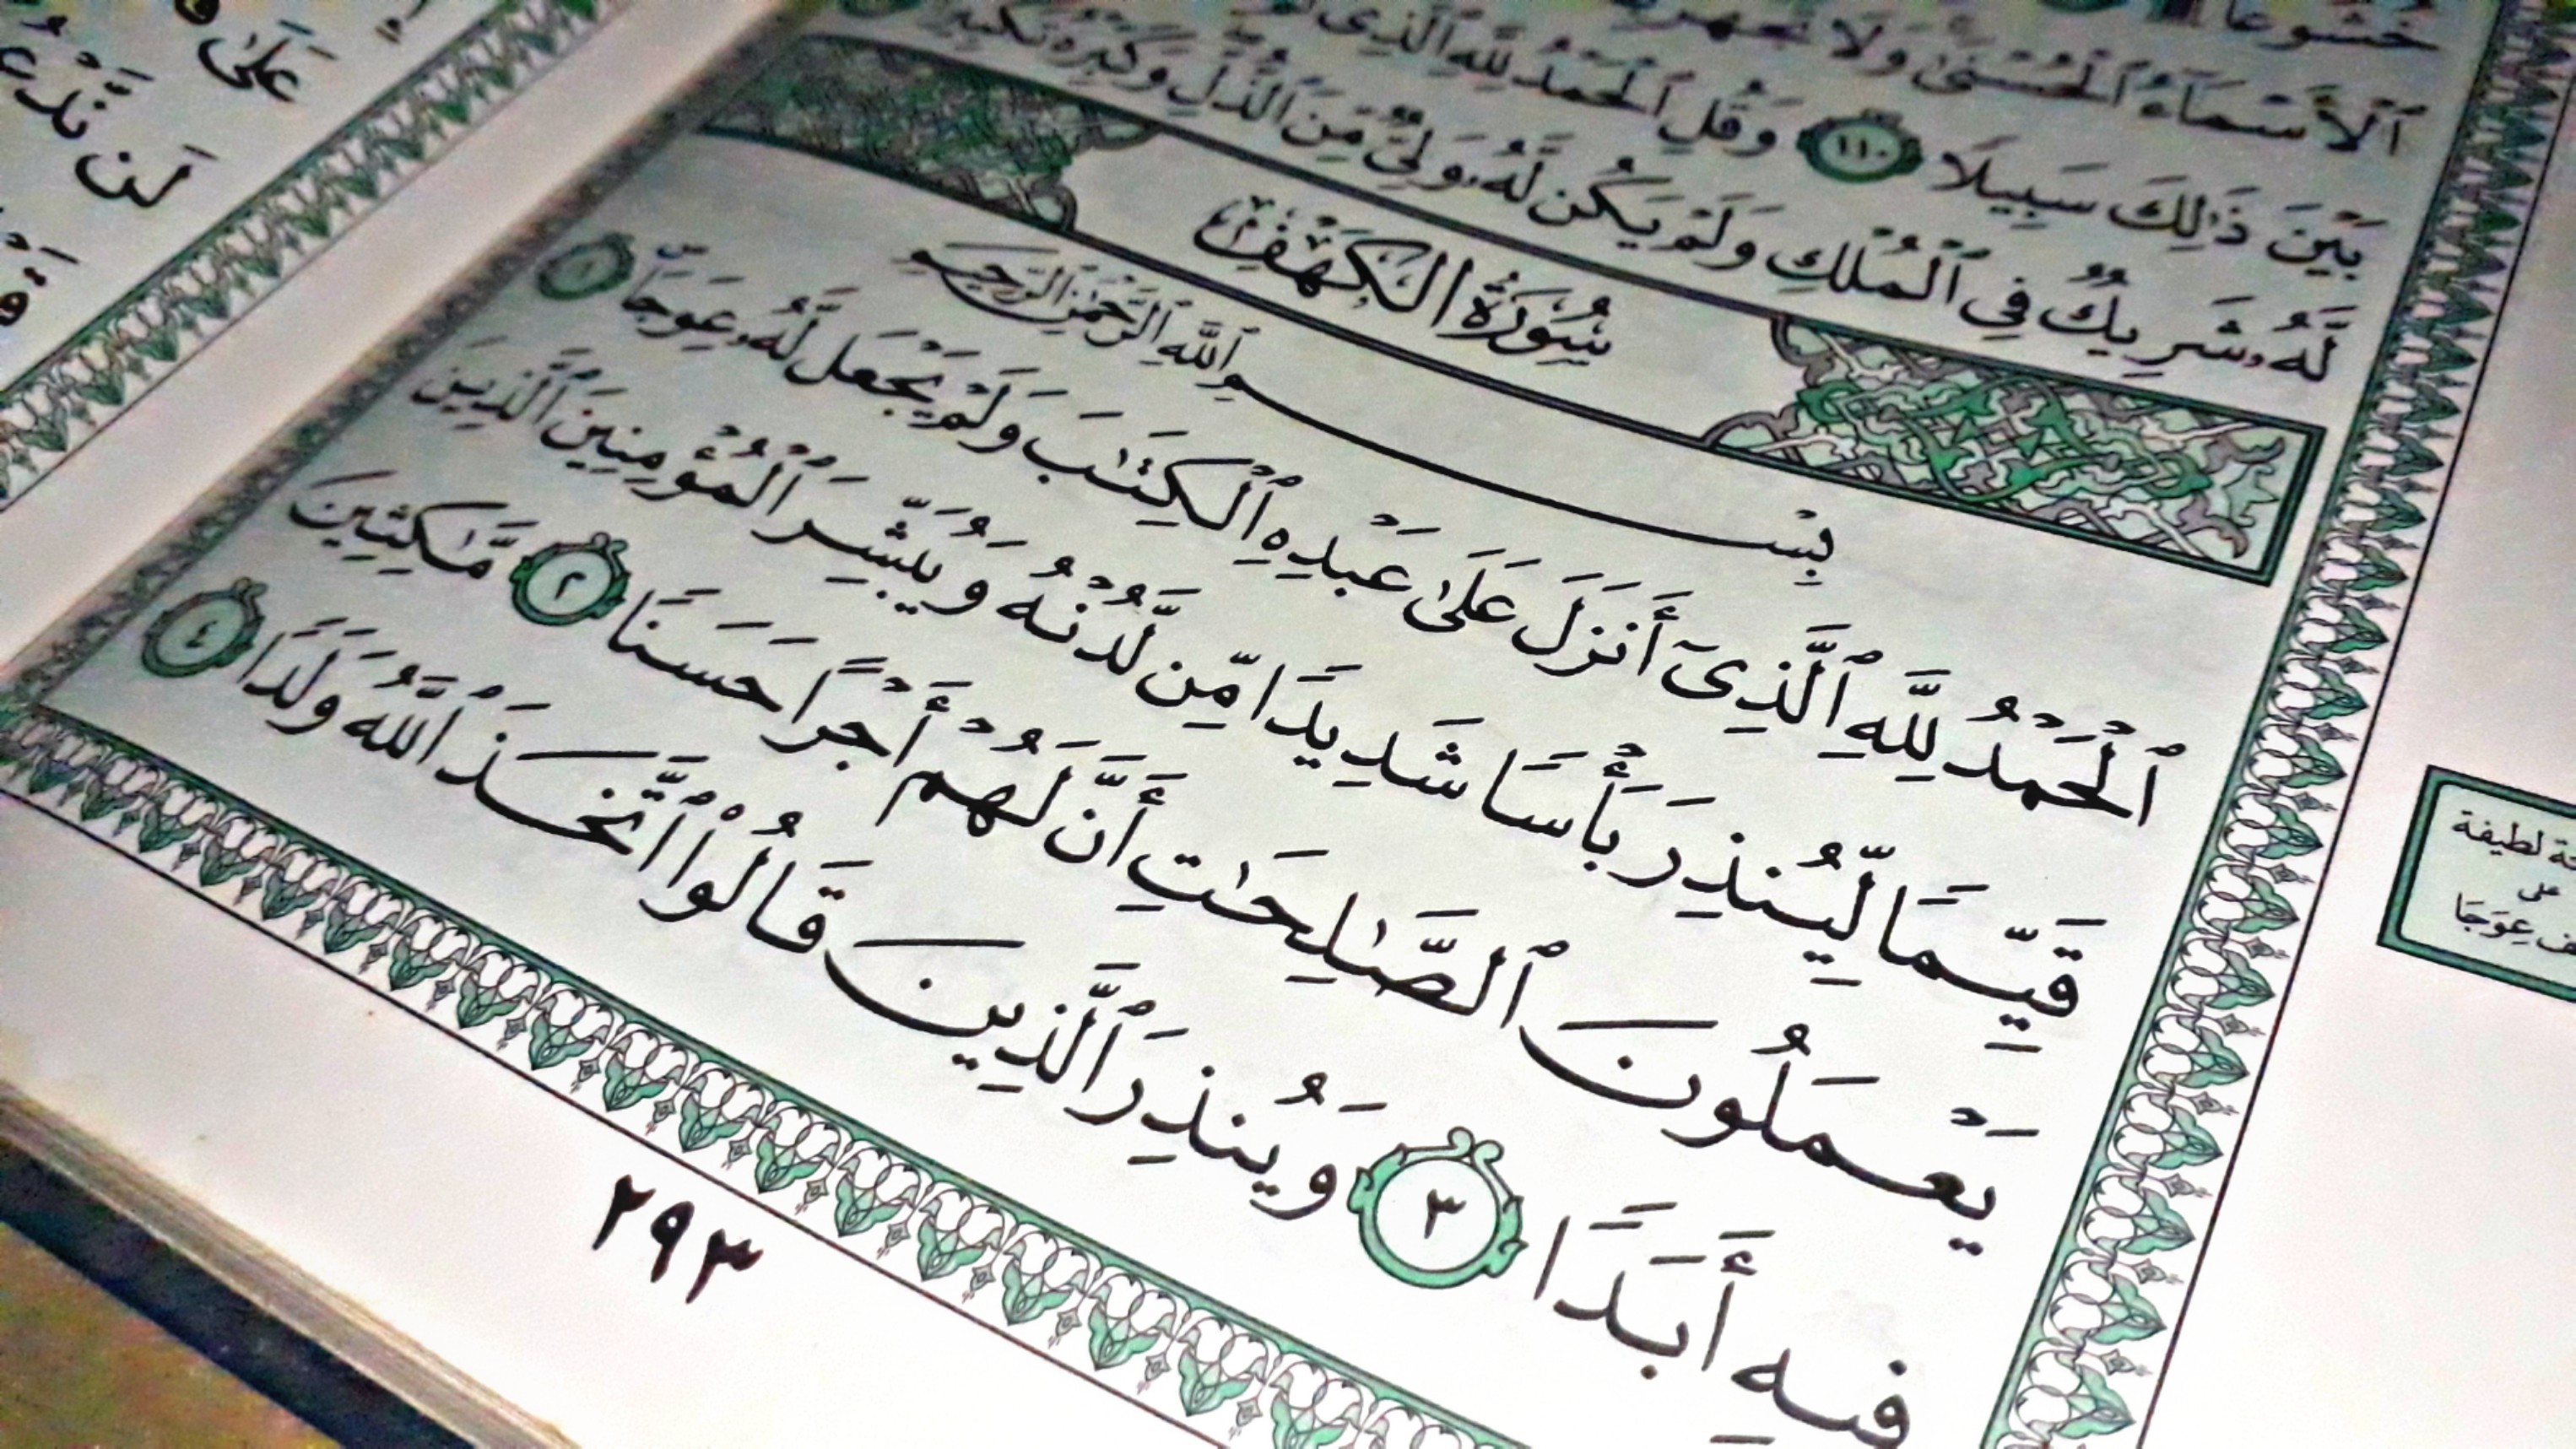 خُشُوعًا
ٱلْأَسْمَآءُ ٱلْحُسْنَىٰ وَلَا تَجْهَرْ
بَيْنَ ذَٰلِكَ سَبِيلًا ١١٠ وَقُلِ ٱلْحَمْدُ لِلَّهِ ٱلَّذِى
لَّهُۥ شَرِيكٌ فِى ٱلْمُلْكِ وَلَمْ يَكُن لَّهُۥ وَلِىٌّ مِّنَ ٱلذُّلِّ وَكَبِّرْهُ تَكْبِيرًۢا
سُورَةُ الكَهْفِ
بِسْمِ ٱللَّهِ ٱلرَّحْمَٰنِ ٱلرَّحِيمِ
ٱلْحَمْدُ لِلَّهِ ٱلَّذِىٓ أَنزَلَ عَلَىٰ عَبْدِهِ ٱلْكِتَٰبَ وَلَمْ يَجْعَل لَّهُۥ عِوَجَاۜ ١
قَيِّمًا لِّيُنذِرَ بَأْسًا شَدِيدًا مِّن لَّدُنْهُ وَيُبَشِّرَ ٱلْمُؤْمِنِينَ ٱلَّذِينَ
يَعْمَلُونَ ٱلصَّٰلِحَٰتِ أَنَّ لَهُمْ أَجْرًا حَسَنًا ٢ مَّٰكِثِينَ
فِيهِ أَبَدًا ٣ وَيُنذِرَ ٱلَّذِينَ قَالُوا۟ ٱتَّخَذَ ٱللَّهُ وَلَدًا ٤
٢٩٣
لطيفة
على
عِوَجَا
عَلَىٰ
لَن نَّدْعُ